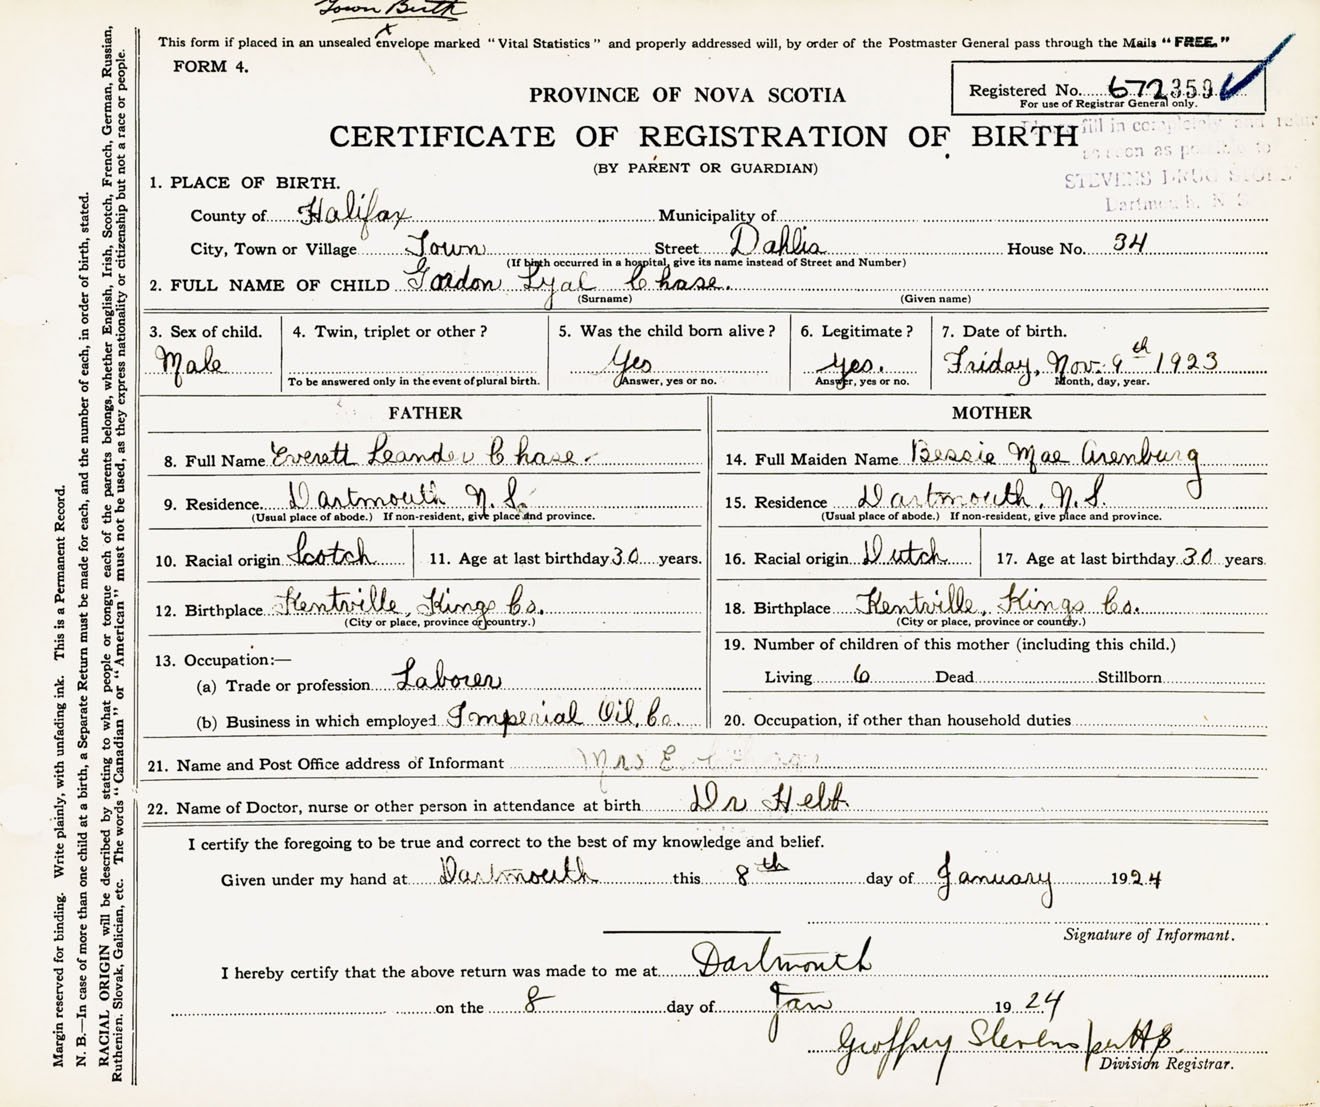 Town Birth
This form if placed in an unsealed envelope marked "Vital Statistics" and properly addressed will, by order of the Postmaster General pass through the Mails "FREE."
FORM 4.
Registered No. 672359
For use of Registrar General only.
PROVINCE OF NOVA SCOTIA
CERTIFICATE OF REGISTRATION OF BIRTH
fill in completely and
as soon as possible to
STEVENS DRUG STORE
Dartmouth, N. S.
(BY PARENT OR GUARDIAN)
1. PLACE OF BIRTH.
County of Halifax Municipality of
City, Town or Village Town Street Dahlia House No. 34
(If birth occurred in a hospital, give its name instead of Street and Number)
2. FULL NAME OF CHILD Gordon Lyal Chase.
(Surname) (Given name)
3. Sex of child. 4. Twin, triplet or other? 5. Was the child born alive? 6. Legitimate? 7. Date of birth.
Male Yes yes. Friday, Nov. 9th 1923
To be answered only in the event of plural birth. Answer, yes or no. Answer, yes or no. Month, day, year.
FATHER
8. Full Name Everett Leander Chase
9. Residence Dartmouth N.S.
(Usual place of abode.) If non-resident, give place and province.
10. Racial origin Scotch 11. Age at last birthday 30 years.
12. Birthplace Kentville, Kings Co.
(City or place, province or country.)
13. Occupation:—
(a) Trade or profession Laborer
(b) Business in which employed Imperial Oil, Co.
MOTHER
14. Full Maiden Name Bessie Mae Arenburg
15. Residence Dartmouth, N.S.
(Usual place of abode.) If non-resident, give place and province.
16. Racial origin Dutch 17. Age at last birthday 30 years
18. Birthplace Kentville, Kings Co.
(City or place, province or country.)
19. Number of children of this mother (including this child.)
Living 6 Dead Stillborn
20. Occupation, if other than household duties
21. Name and Post Office address of Informant Mrs E
22. Name of Doctor, nurse or other person in attendance at birth Dr Hebb
I certify the foregoing to be true and correct to the best of my knowledge and belief.
Given under my hand at Dartmouth this 8th day of January 1924
Signature of Informant.
I hereby certify that the above return was made to me at Dartmouth
on the 8 day of Jan 1924
Geoffrey Stevens per HS.
Division Registrar.
Margin reserved for binding. Write plainly, with unfading ink. This is a Permanent Record.
N. B.—In case of more than one child at a birth, a Separate Return must be made for each, and the number of each, in order of birth, stated.
RACIAL ORIGIN will be described by stating to what people or tongue each of the parents belongs, whether English, Irish, Scotch, French, German, Russian,
Ruthenian, Slovak, Galician, etc. The words "Canadian" or "American" must not be used, as they express nationality or citizenship but not a race or people.